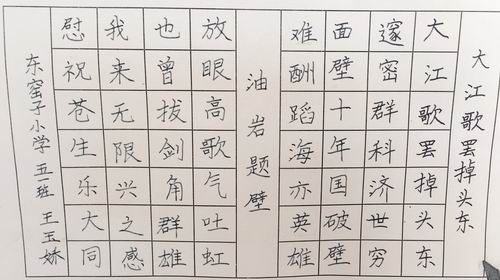 大江歌罢掉头东
大江歌罢掉头东
邃密群科济世穷
面壁十年国破壁
难酬蹈海亦英雄
油岩题壁
放眼高歌气吐虹
也曾拔剑角群雄
我来无限兴之感
慰祝苍生乐大同
东窑子小学 五一班 王玉娇